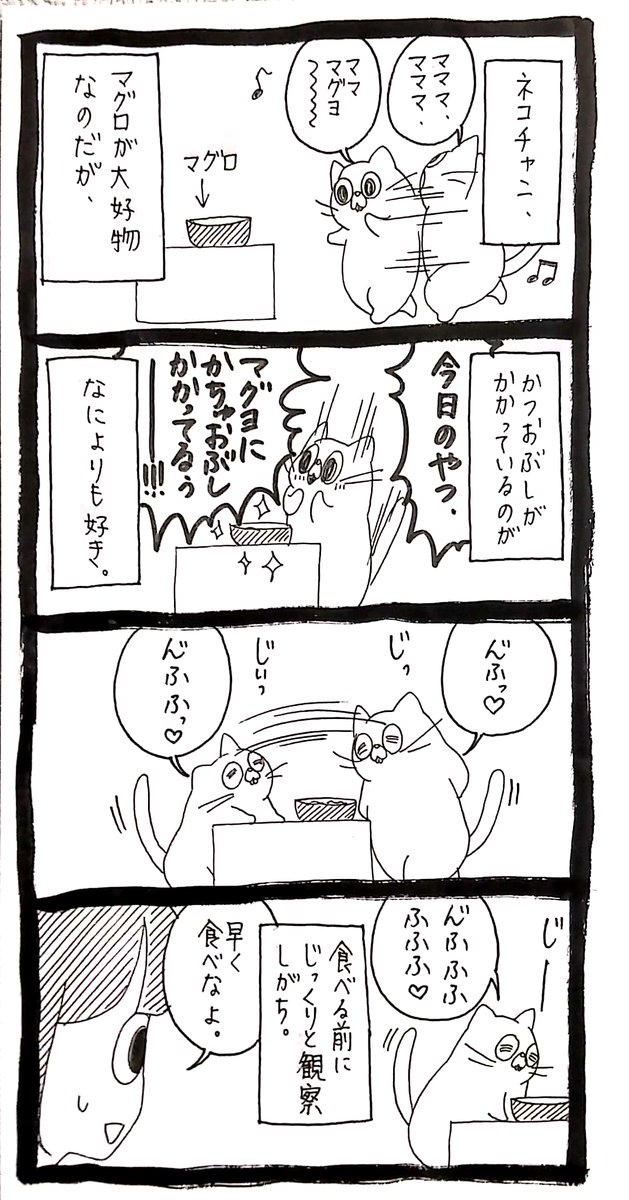 ネコチャン、
ママママ、
ママママ、
ママ
マグヨ
〜〜〜〜
マグロ
マグロが大好物
なのだが、
かつおぶしが
かかっているのが
今日のやつ、
マグヨに
かちゅおぶし
かかってるぅ
ーーー!!!
なによりも好き。
んふっ♡
じっ
じぃっ
んふふっ♡
じー
んふふふ
ふふふ♡
食べる前に
じっくりと観察
しがち。
早く
食べなよ。